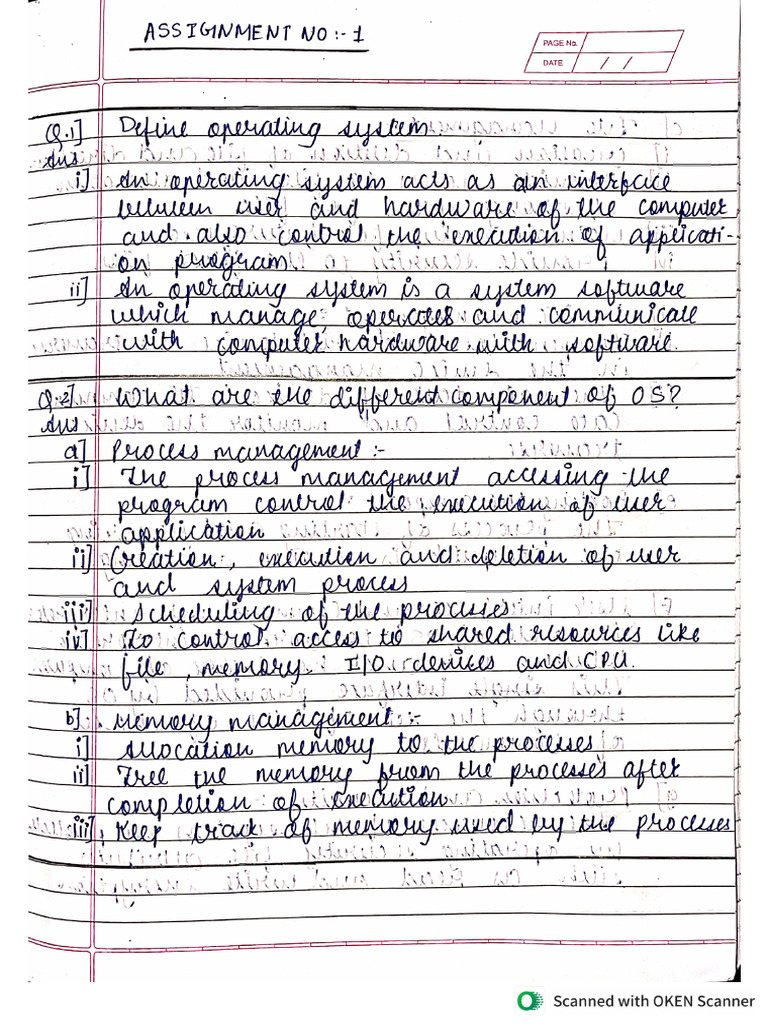 ASSIGNMENT NO:- 1
PAGE No.
DATE / /
Q.1] Define operating system
Ans
i] An operating system acts as an interface
between user and hardware of the computer
and also control the execution of applicati-
on program
ii] An operating system is a system software
which manage, operates and communicate
with computer hardware with software.
Q.2] What are the different component of OS?
Ans
a] Process management :-
i] The process management accessing the
program control the execution of user
application
ii] Creation, execution and deletion of user
and system process
iii] Scheduling of the processes
iv] To control access to shared resources like
file, memory, I/O devices and CPU.
b] Memory management :-
i] Allocation memory to the processes
ii] Free the memory from the processes after
completion of execution
iii] Keep track of memory used by the processes
Scanned with OKEN Scanner